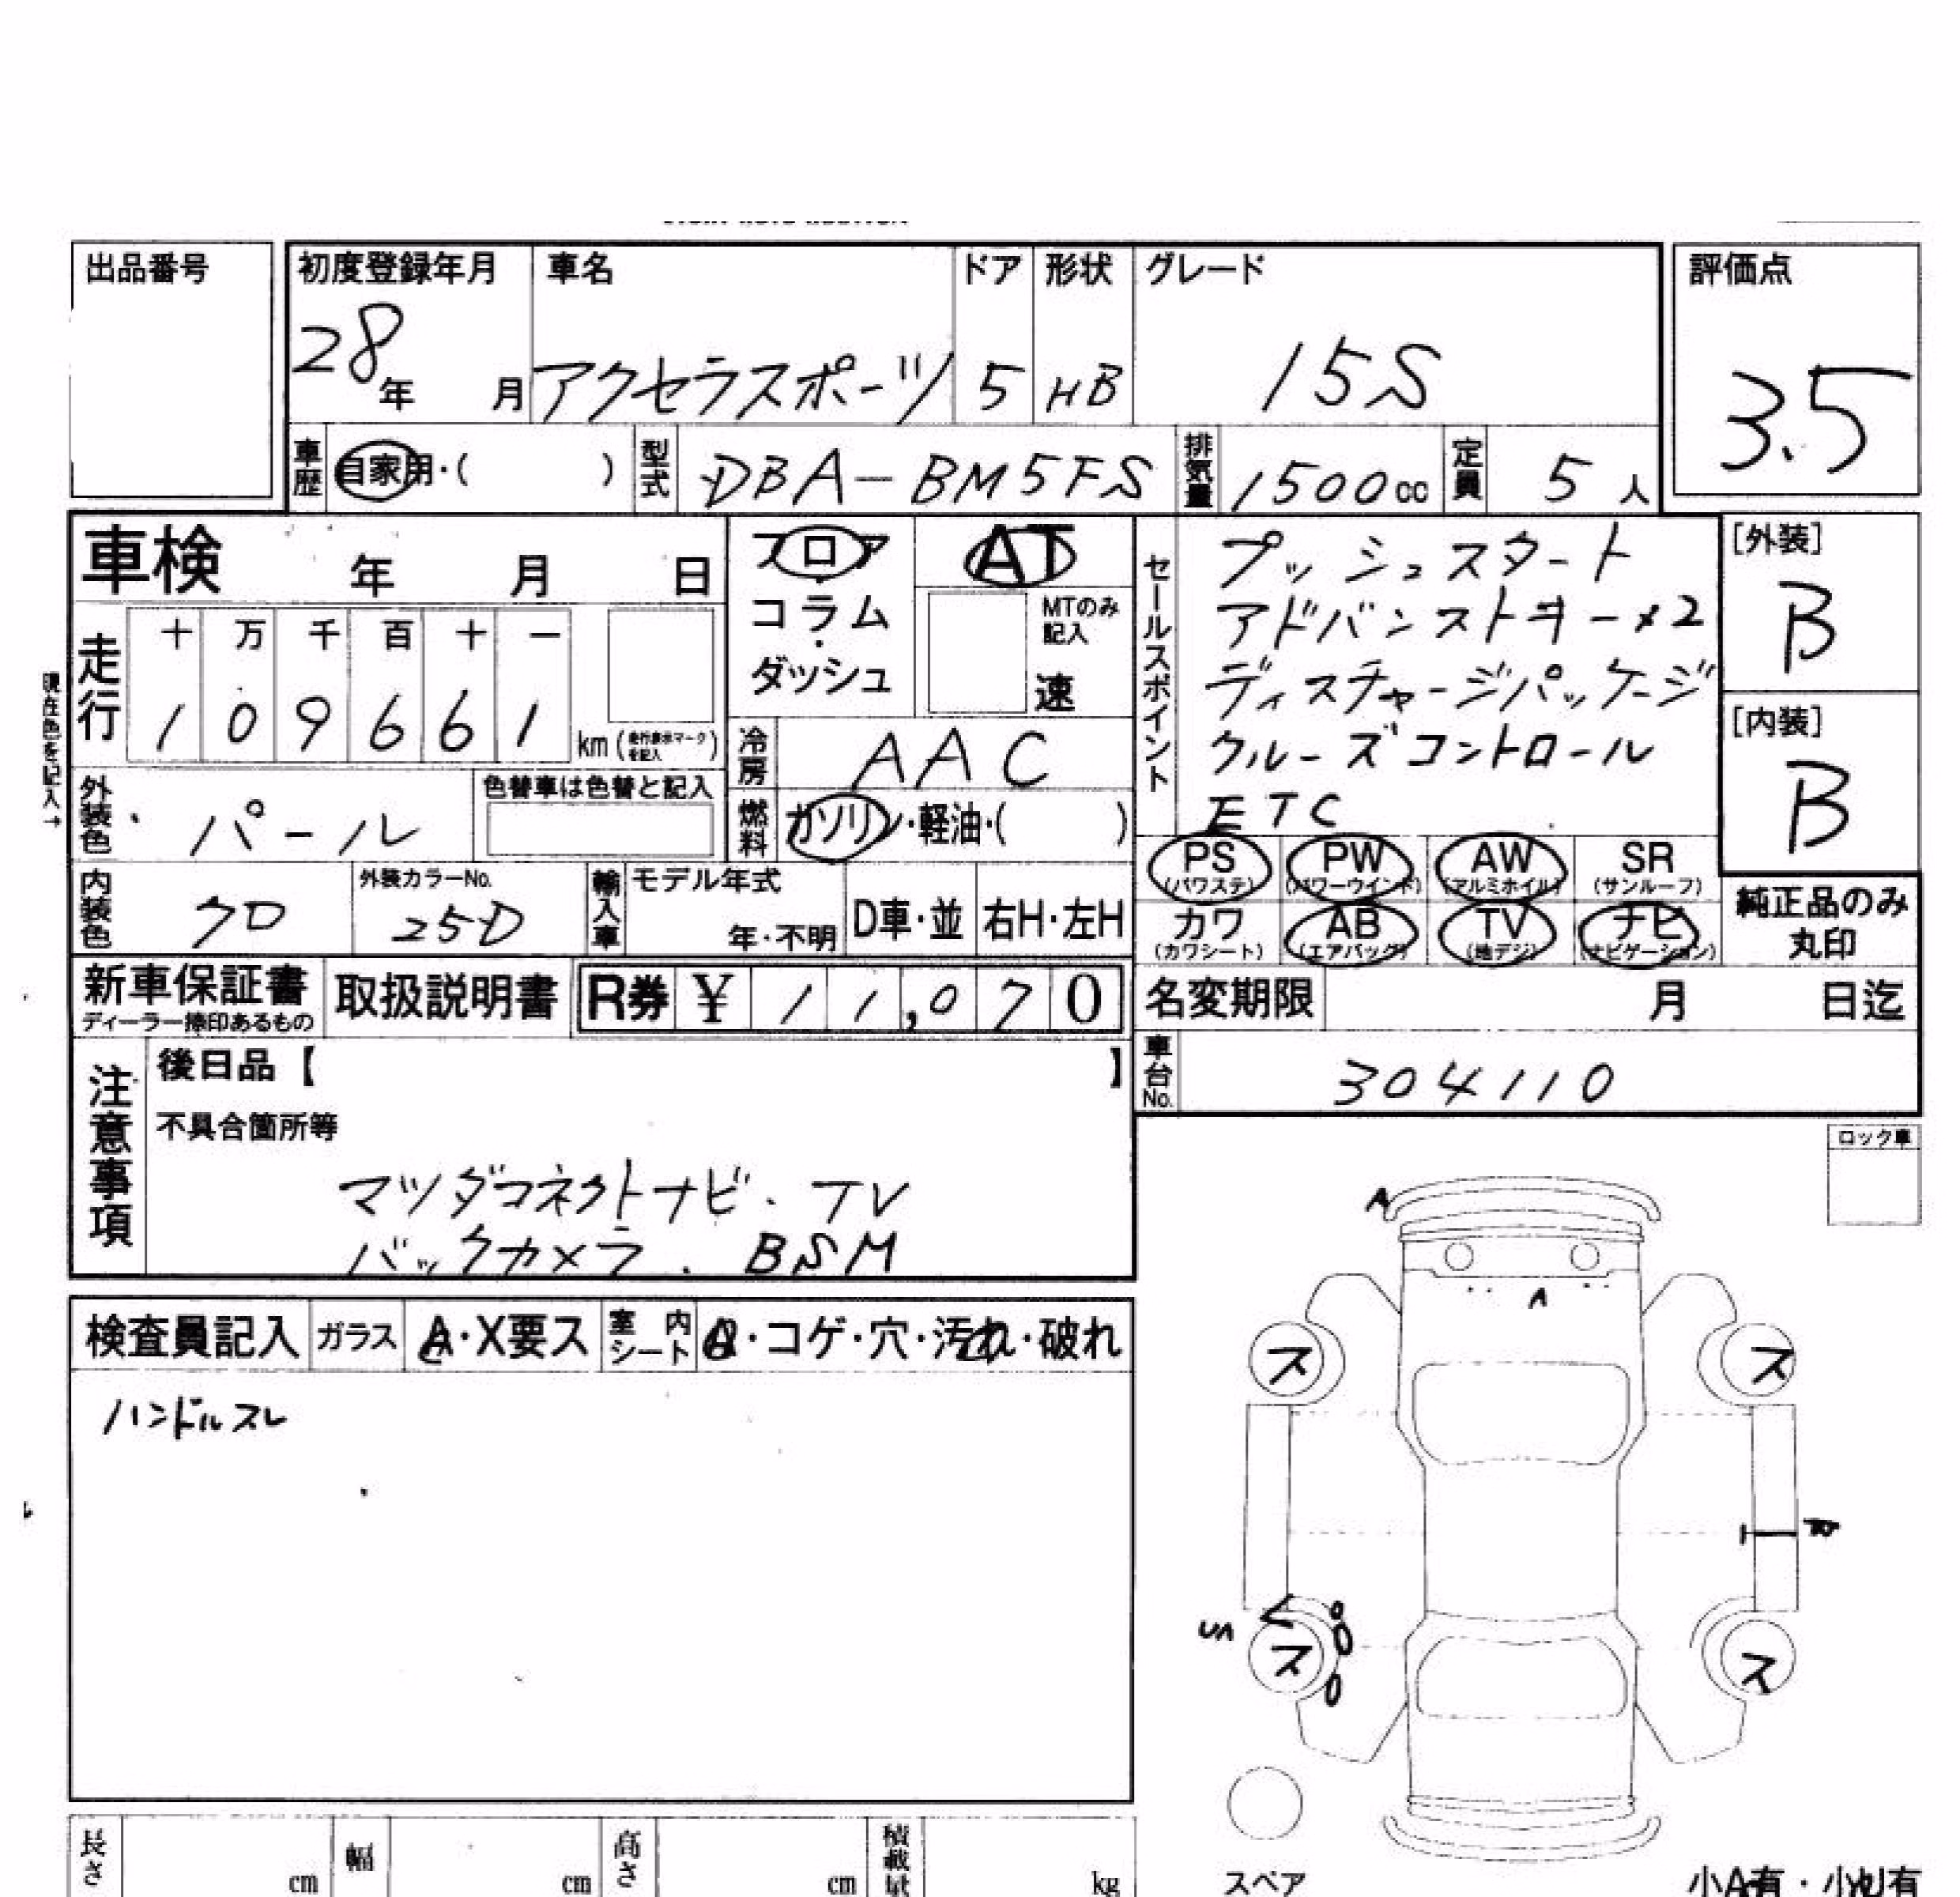 出品番号
初度登録年月 車名 ドア 形状 グレード 評価点
28年 月 アクセラスポーツ 5 HB 15S 3.5
車歴 自家用・( ) 型式 DBA-BM5FS 排気量 1500cc 定員 5人
車検 年 月 日
フロア・コラム・ダッシュ
AT
MTのみ記入
速
セールスポイント
プッシュスタート
アドバンストキー×2
ディスチャージパッケージ
クルーズコントロール
ETC
[外装]
B
[内装]
B
現在色を記入→
走行 十 万 千 百 十 一
1 0 9 6 6 1 km (走行表示マークを記入)
冷房 AAC
外装色 パール 色替車は色替と記入
燃料 ガソリン・軽油・( )
PS (パワステ) PW (パワーウインド) AW (アルミホイル) SR (サンルーフ)
カワ (カワシート) AB (エアバッグ) TV (地デジ) ナビ (ナビゲーション)
純正品のみ
丸印
内装色 クロ 外装カラーNo. 25D 輸入車 モデル年式 年・不明 D車・並 右H・左H
新車保証書 取扱説明書 R券 ¥ 11,070 名変期限 月 日迄
ディーラー捺印あるもの
車台No. 304110
注意事項
後日品【 】
不具合箇所等
マツダコネクトナビ.TV
バックカメラ.BSM
ロック車
検査員記入 ガラス A・X要ス 室内シート ・コゲ・穴・汚れ・破れ
ハンドルスレ
A
A
ス ス
UA
ス ス
スペア
小A有・小U有
長さ cm 幅 cm 高さ cm 積載量 kg